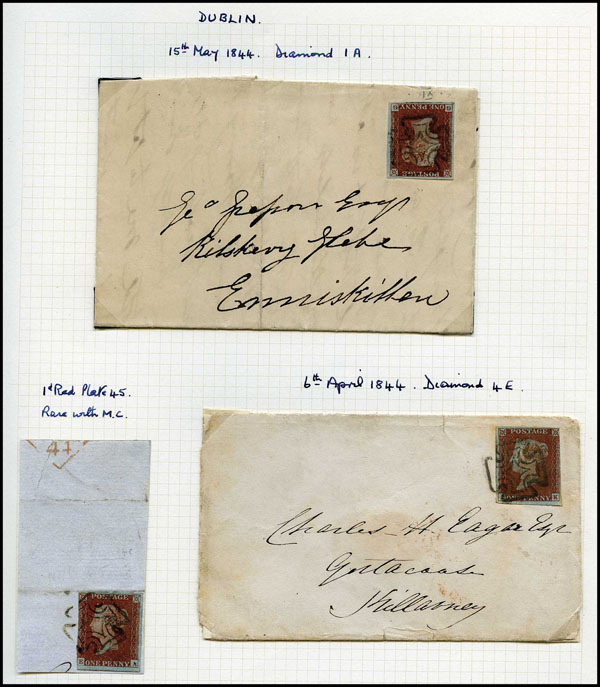 DUBLIN.
15th May 1844. Diamond 1A.
ONE PENNY
POSTAGE
Esqr
Kilskery Glebe
Enniskillen
1d Red Plate 45.
Rare with M.C.
6th April 1844. Diamond 4E.
44
POSTAGE
ONE PENNY
K
Charles H Eagar Esqr
Killarney
POSTAGE
ONE PENNY
A